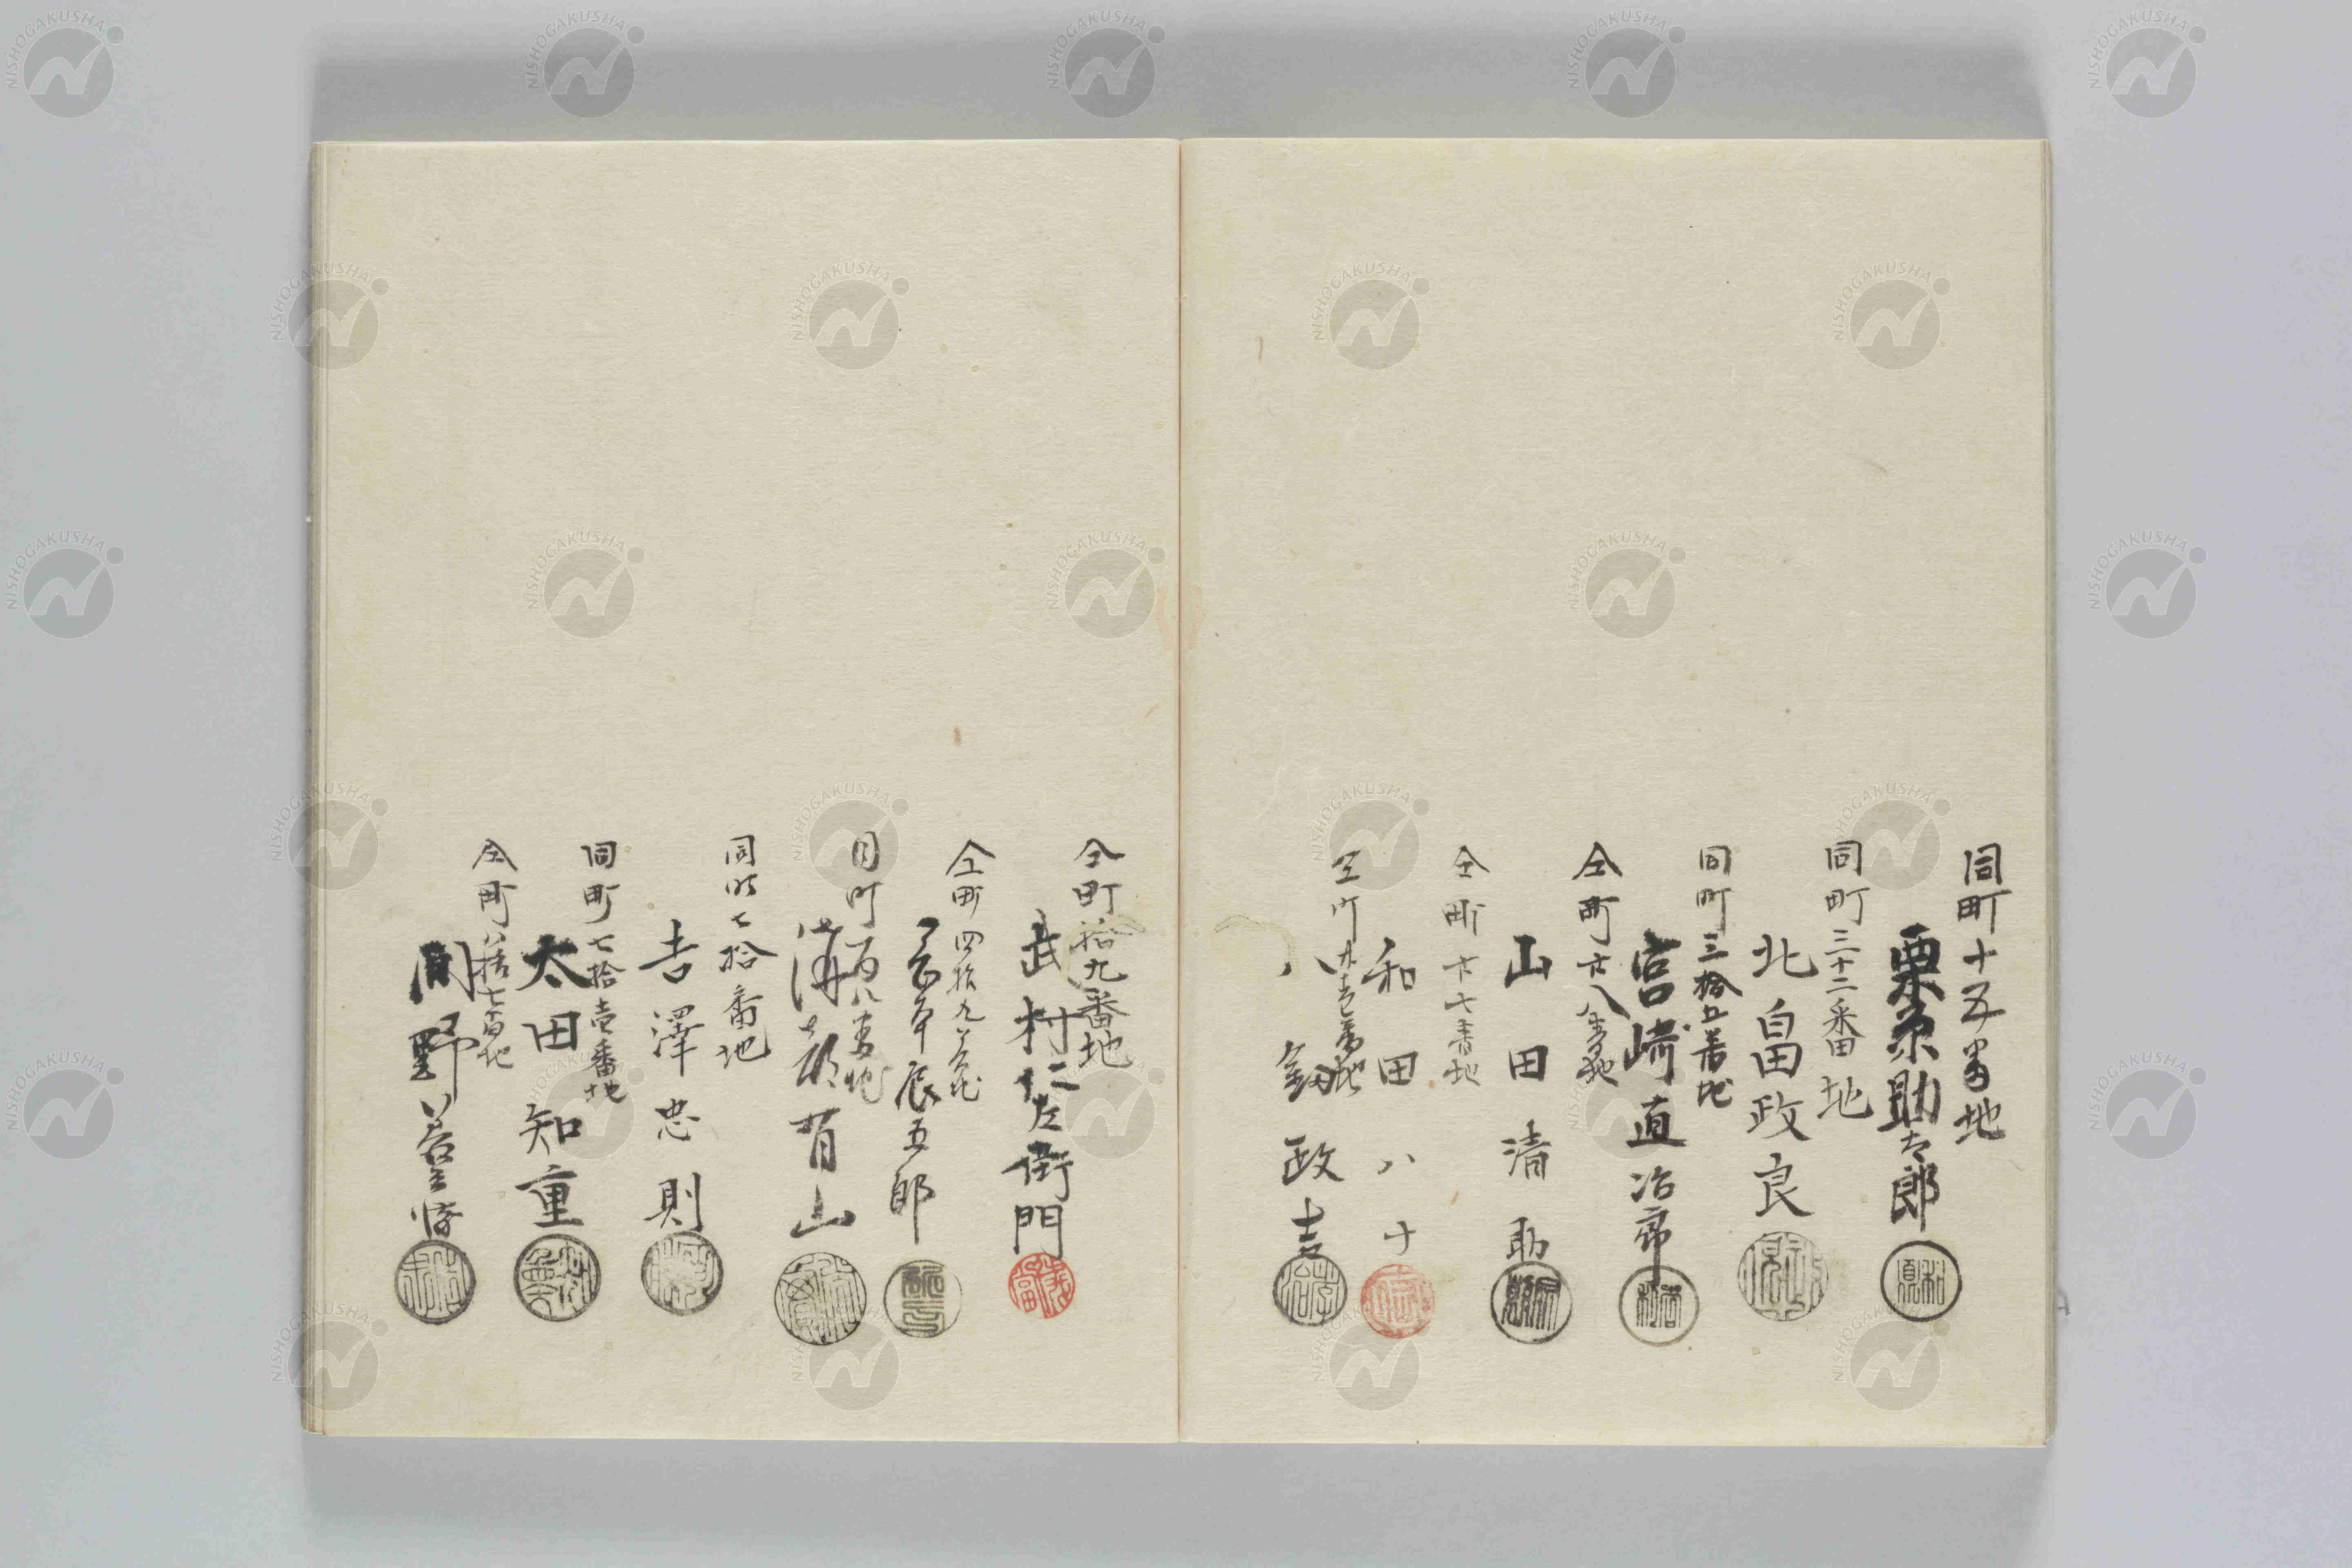 同町十五番地
栗原助太郎
同町三十二番地
北畠政良
同町三拾五番地
宮崎直治郎
仝町廿八番地
山田清助
仝町廿七番地
和田八十
仝町廿壱番地
八釼政吉
仝町拾九番地
武村仁左衛門
仝町四拾九番地
辰五郎
同町
溝
有山
同町七拾番地
吉澤忠則
同町七拾壱番地
太田知重
仝町
間野
NISHOGAKUSHA